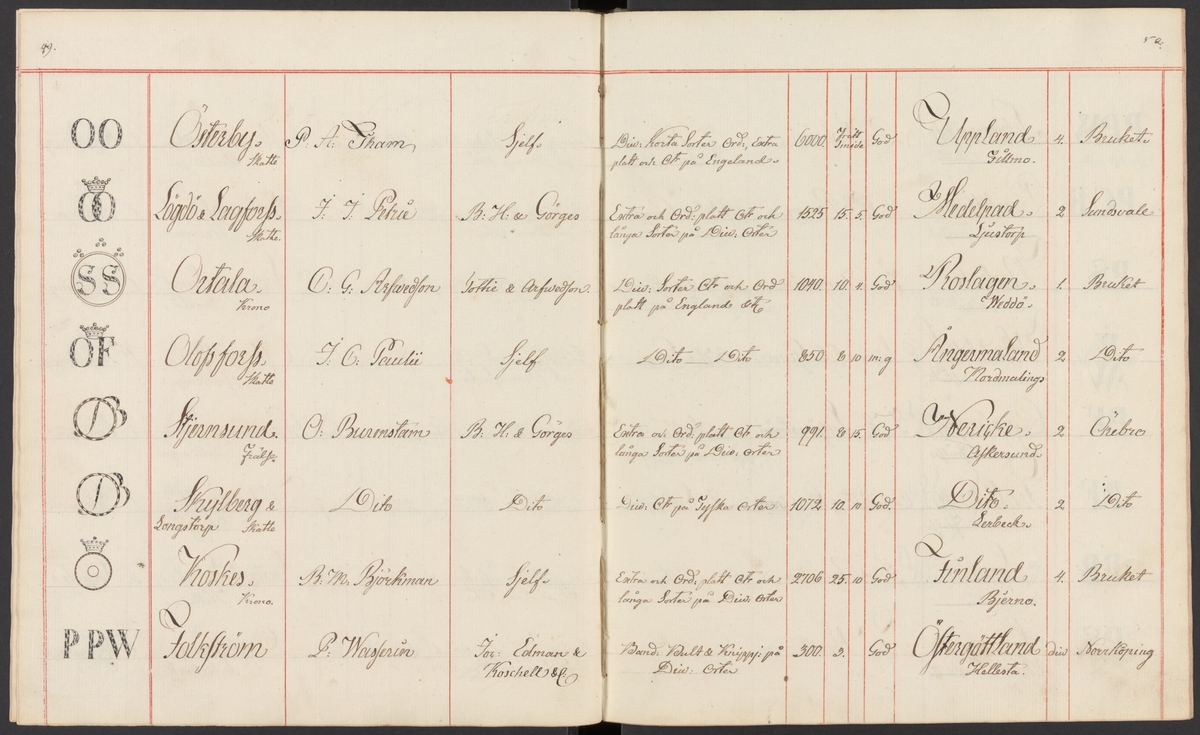 49.
50.
OO Österby. P. A. Tham Sjelf. Div: Korta Sorter Ord:, Extra 6000. God Uppland 4. Bruket.
Skatte platt och Ctr på Engeland. Fillmo.
OO Lögdö & Lagforss. J. J. Petré B: H: & Görges Extra och Ord: platt Ctr och 1525 15. 5. God Medelpad. 2 Sundsvale
Skatte. långa Sorter på Div: Orter Ljustorp
SS Ortala C: G: Arfwedson Tottie & Arfwedson. Div: Sorter Ctr och Ord 1040. 10. 4. God Roslagen. 1. Bruket
Krono platt på England &c Weddö.
OF Olofsforss. J. C. Pauli Sjelf Dito Dito 850 8 10 m: g Ångermaland 2 Dito
Skatte Nordmalings
B Stjernsund. O: Burenstam B: H: & Görges Extra oc: Ord: platt Ctr och 991. 8 15. God Nericke. 2 Örebro
Frälse. långa Sorter på Div: orter Askersund.
B Skylberg & Dito Dito Div: Ctr på Tyska Orter 1072 10. 10 God. Dito. 2 Dito
Longstorp Skatte Lerbeck.
Koskes. B. M. Björkman Sjelf. Extra och Ord: platt Ctr och 2706 25. 10 God Finland 4. Bruket
Krono. långa Sorter på Div: Orter Bjerno.
PPW Folkström P: Jac: Edman & Band, Bult & Knippj: på 300. 3. God Östergöttland div Norrköping
Koschell &C Div: Orter Hellesta.